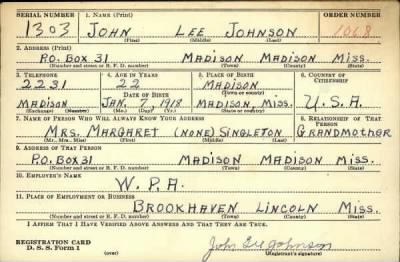 SERIAL NUMBER 1. NAME (Print) ORDER NUMBER
1303 JOHN LEE JOHNSON 1068
(First) (Middle) (Last)
2. ADDRESS (Print)
P.O. BOX 31 MADISON MADISON MISS.
(Number and street or R. F. D. number) (Town) (County) (State)
3. TELEPHONE 4. AGE IN YEARS 5. PLACE OF BIRTH 6. COUNTRY OF CITIZENSHIP
2231 22 MADISON
DATE OF BIRTH (Town)
MADISON JAN. 7, 1918 MADISON, MISS. U.S.A.
(Exchange) (Number) (Mo.) (Day) (Yr.) (County) (State)
7. NAME OF PERSON WHO WILL ALWAYS KNOW YOUR ADDRESS 8. RELATIONSHIP OF THAT PERSON
MRS. MARGARET (NONE) SINGLETON GRANDMOTHOR
(Mr., Mrs., Miss) (First) (Middle) (Last)
9. ADDRESS OF THAT PERSON
P.O. BOX 31 MADISON MADISON MISS.
(Number and street or R. F. D. number) (Town) (County) (State)
10. EMPLOYER'S NAME
W.P.A.
11. PLACE OF EMPLOYMENT OR BUSINESS
BROOKHAVEN LINCOLN MISS.
(Number and street or R. F. D. number) (Town) (County) (State)
I AFFIRM THAT I HAVE VERIFIED ABOVE ANSWERS AND THAT THEY ARE TRUE.
REGISTRATION CARD
D. S. S. Form 1 (over) John Lee Johnson
(Registrant's signature)